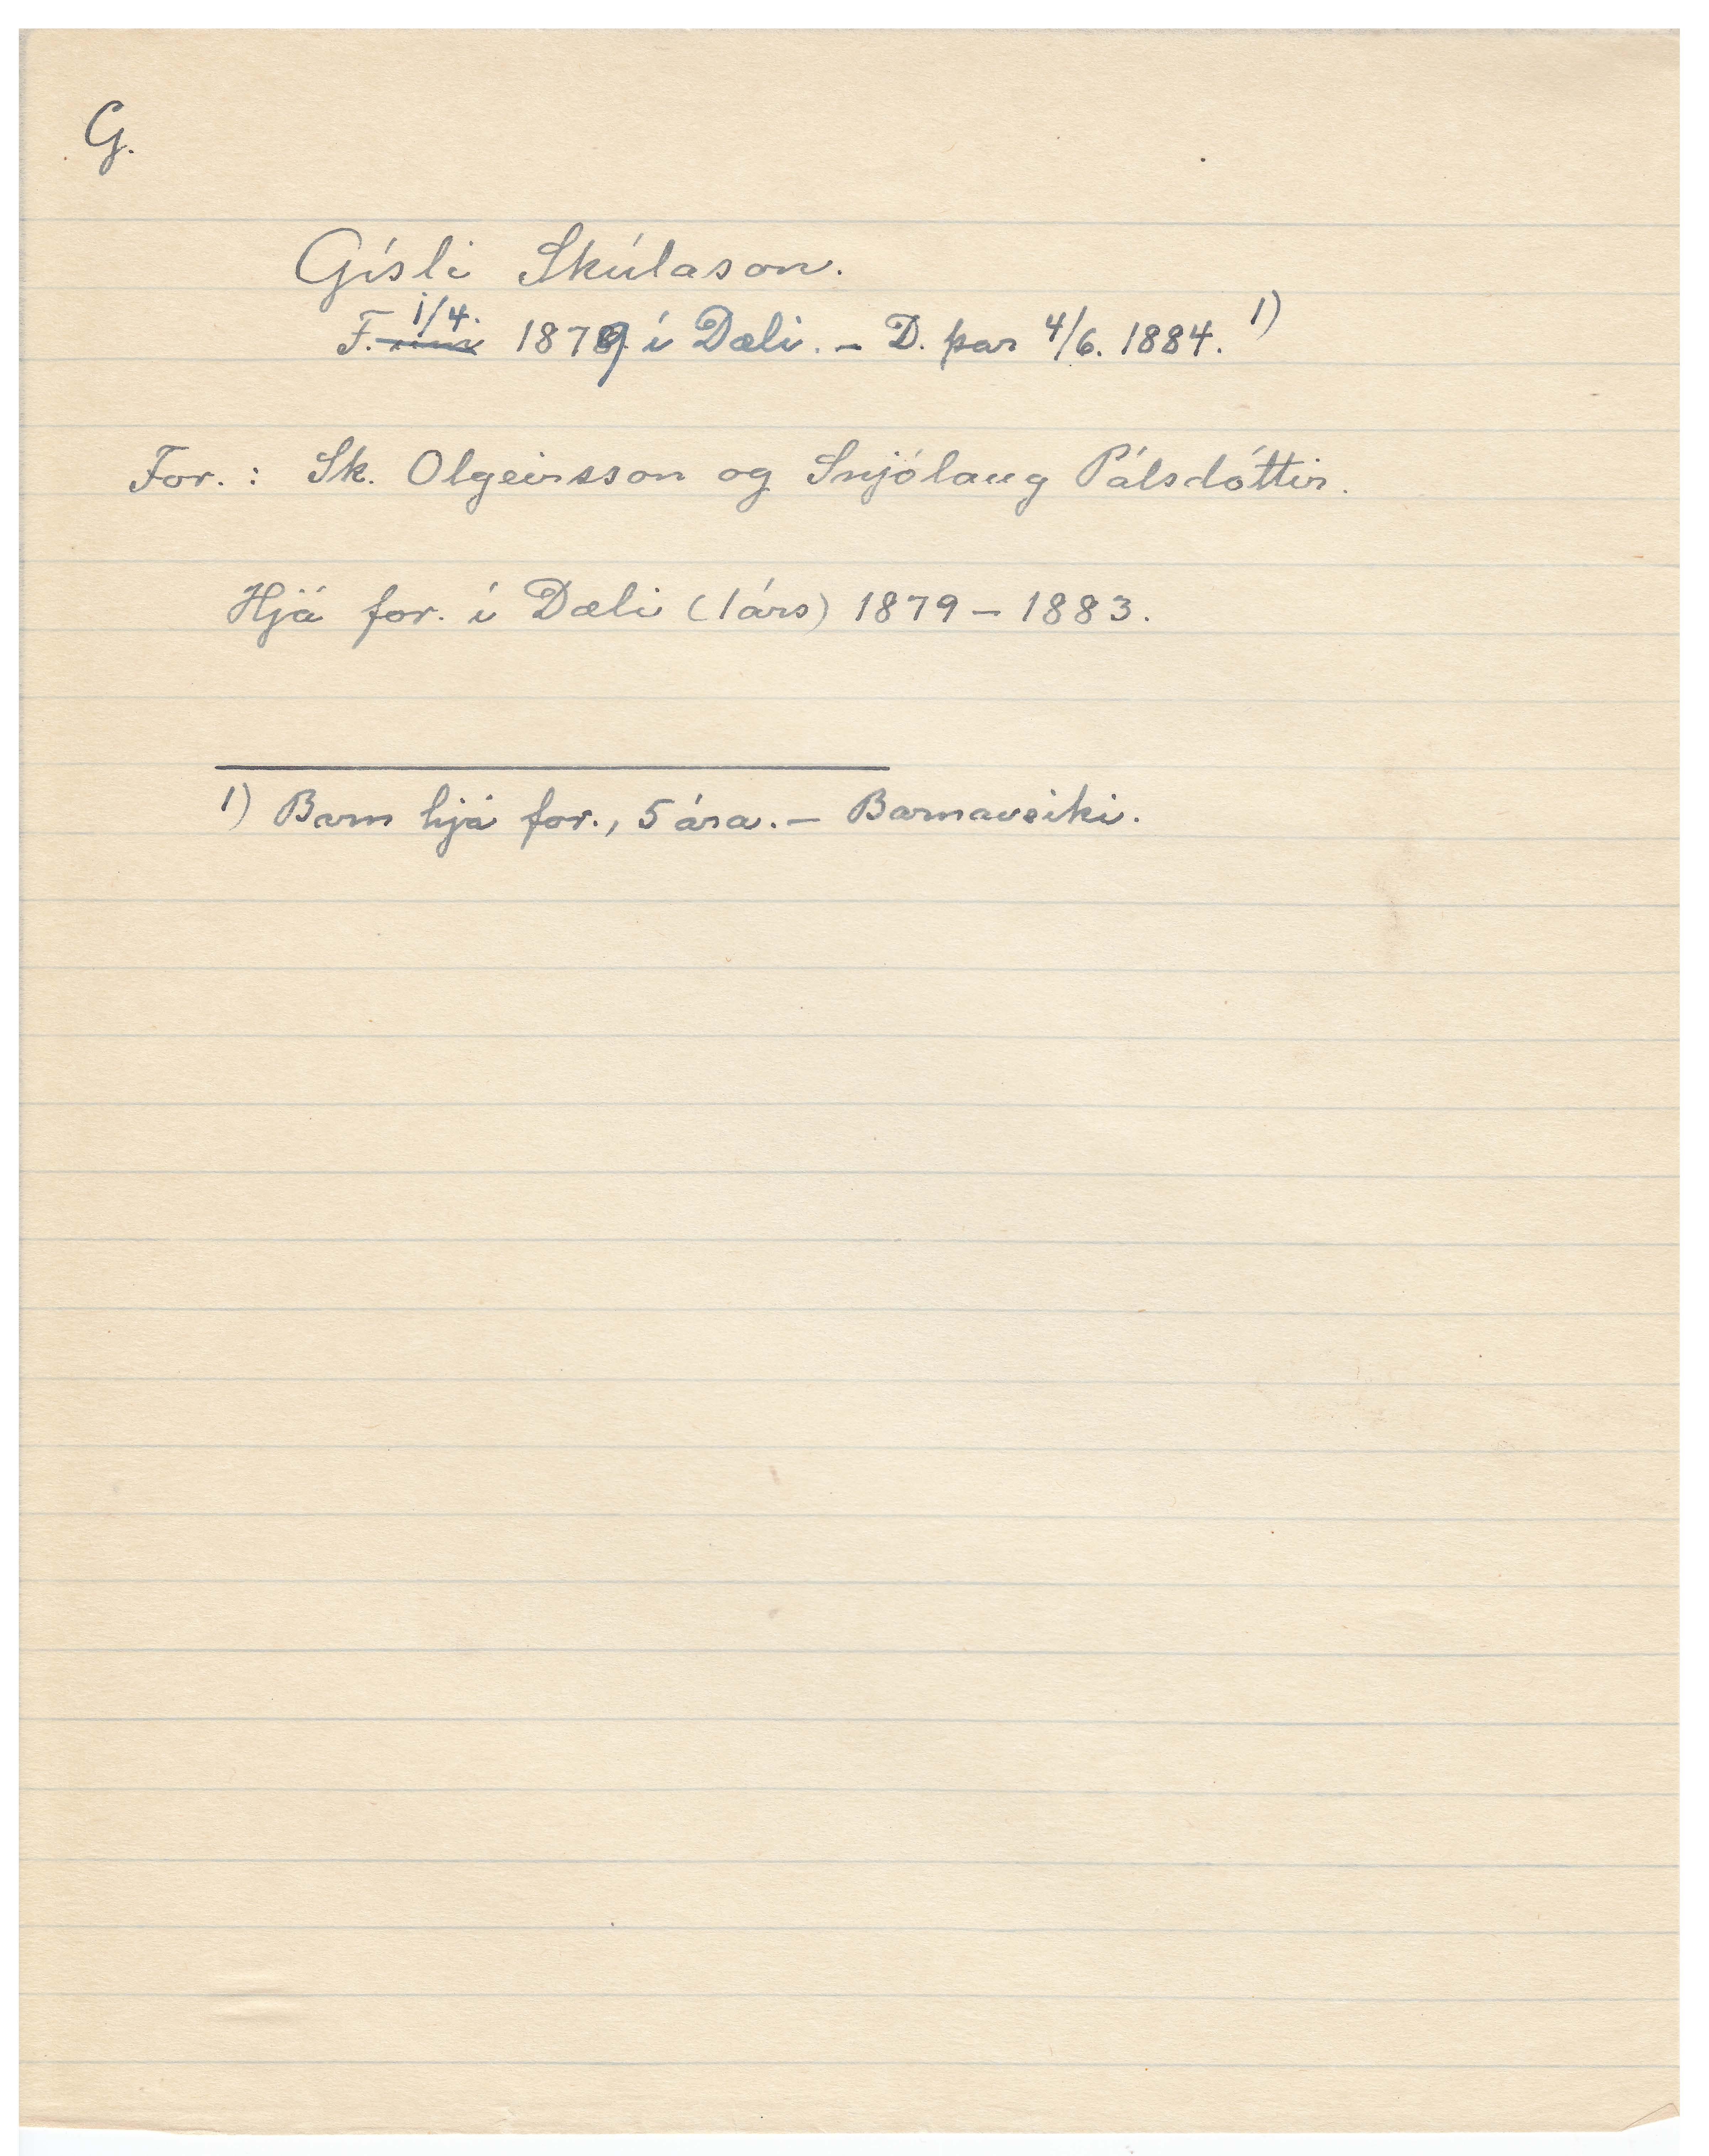 G.
Gísli Skúlason.
F. 1/4. 1879 í Dæli. – D. þar 4/6. 1884. 1)
For.: Sk. Olgeirsson og Snjólaug Pálsdóttir.
Hjá for. í Dæli (1árs) 1879 – 1883.
1) Barn hjá for., 5 ára. – Barnaveiki.